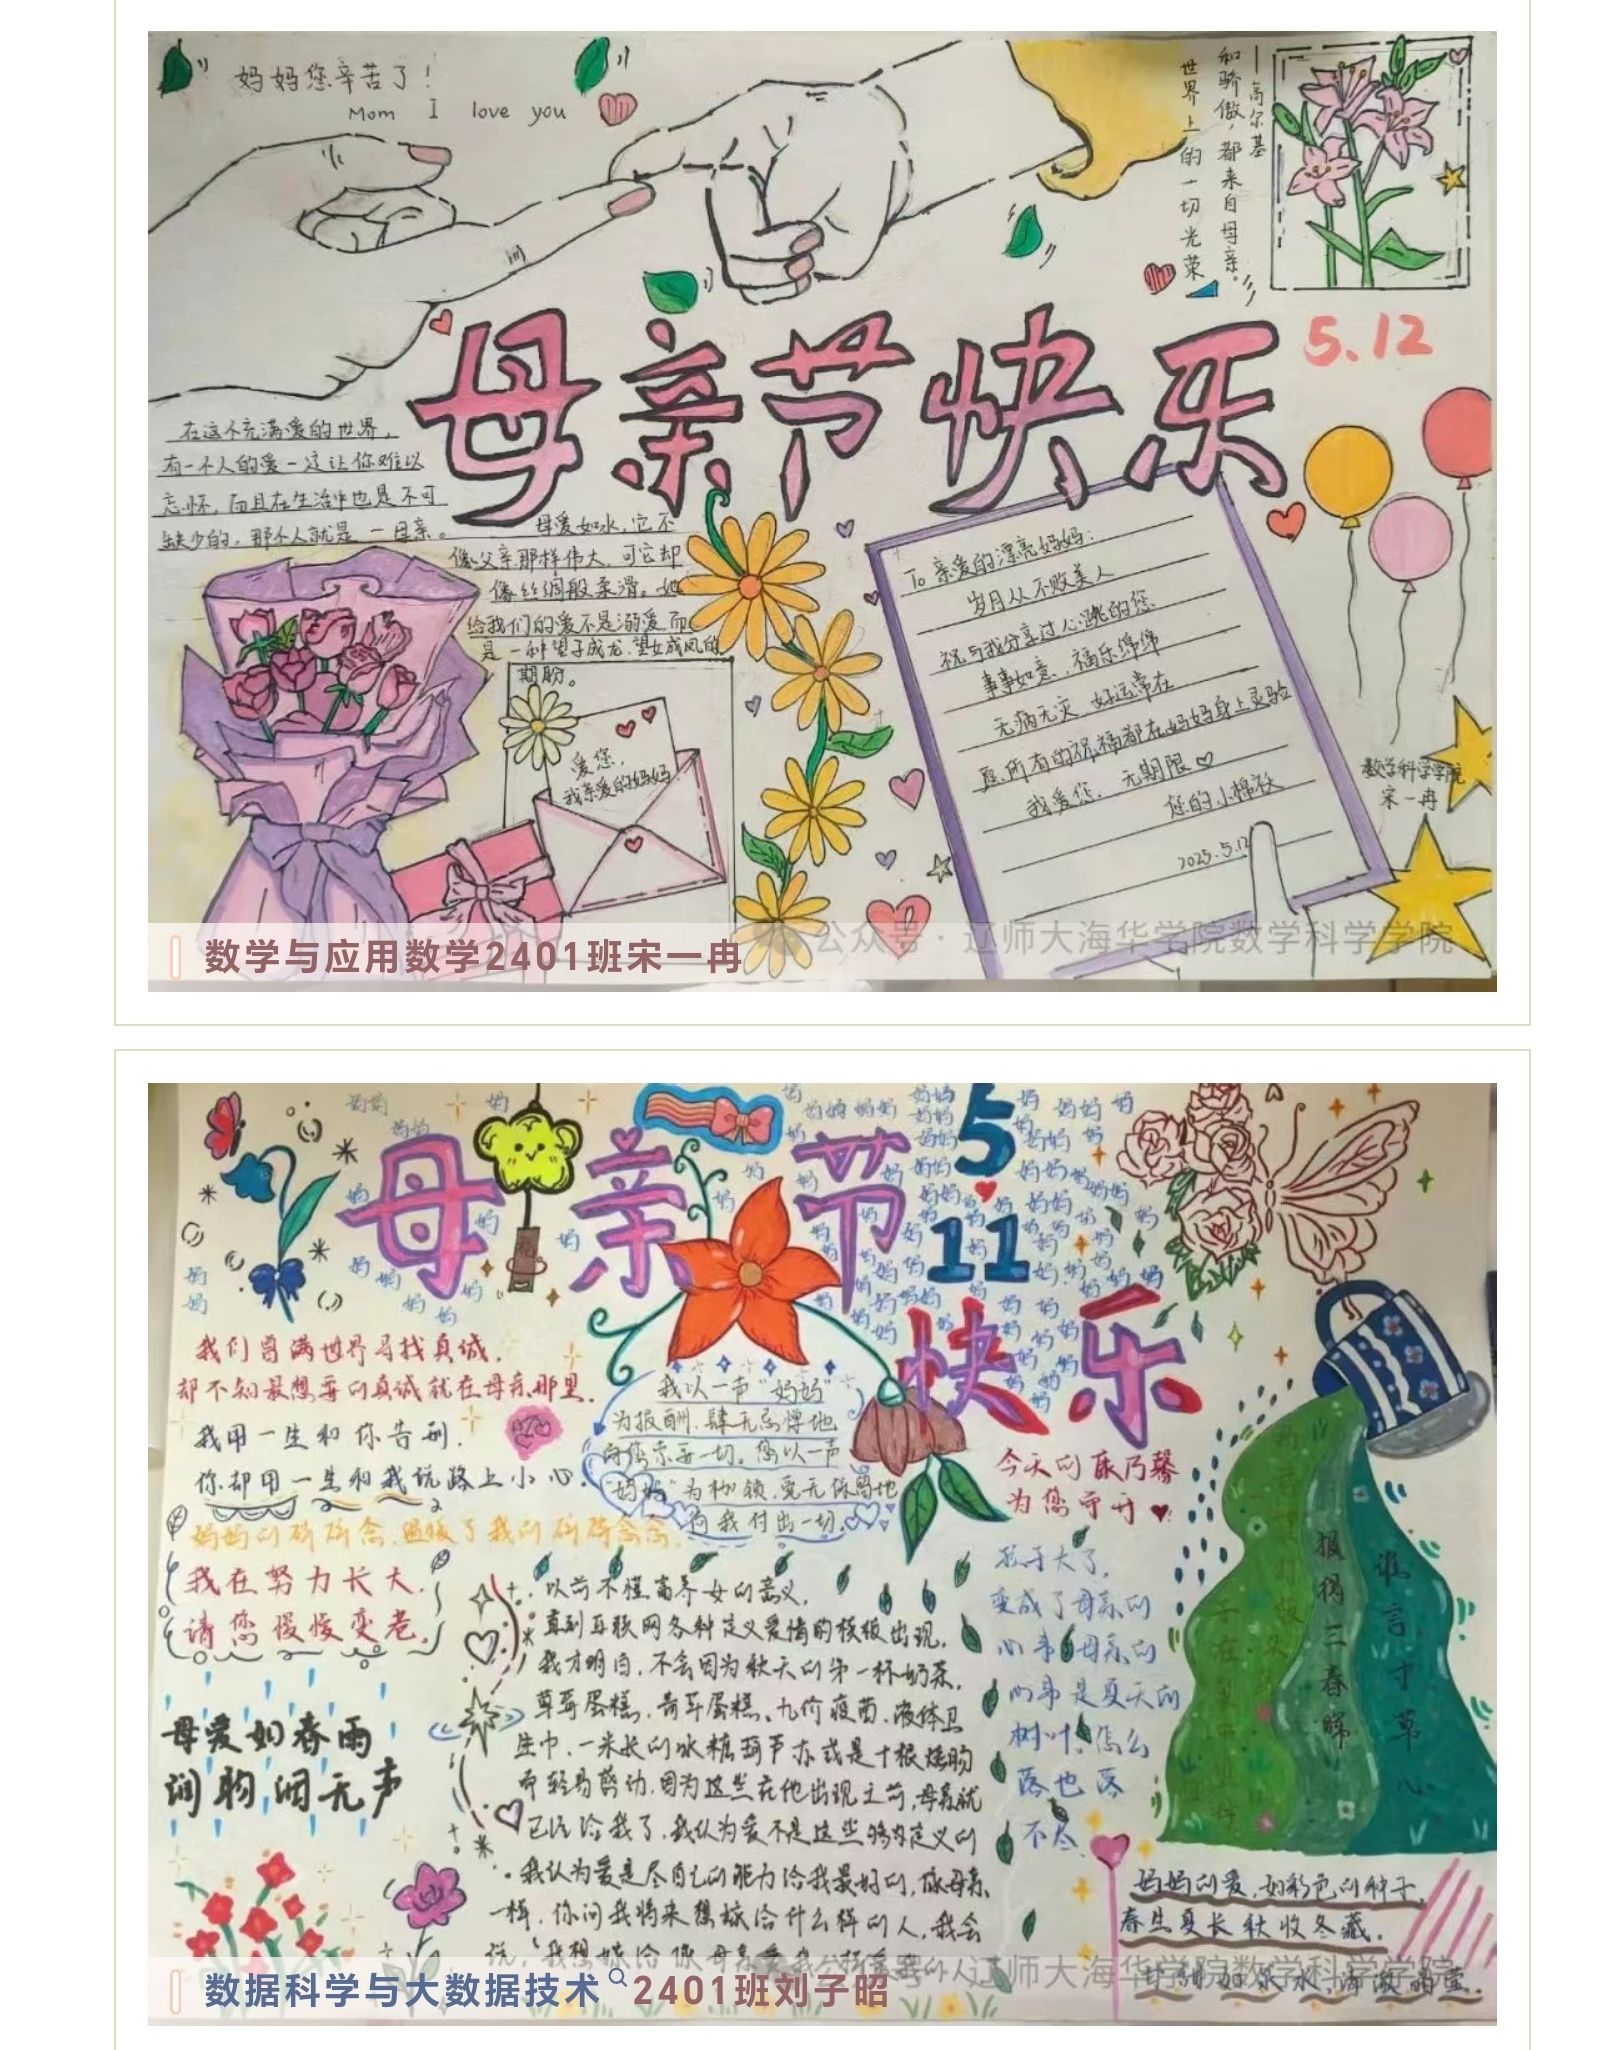 妈妈您辛苦了！
Mom I love you
世界上的一切光荣
和骄傲，都来自母亲。
—高尔基
母亲节快乐
5.12
在这个充满爱的世界，
有一个人的爱一定让你难以
忘怀，而且在生活中也是不可
缺少的。那个人就是—母亲。
母爱如水，它不
像父亲那样伟大，可它却
像丝绸般柔滑。她
给我们的爱不是溺爱而
是一种望子成龙，望女成凤的
期盼。
爱您，
我亲爱的妈妈
To 亲爱的漂亮妈妈：
岁月从不败美人
祝与我分享过心跳的您
事事如意，福乐绵绵
无病无灾，好运常在
愿所有的祝福都在妈妈身上灵验
我爱您，无期限
您的小棉袄
2025.5.12
数学科学学院
宋一冉
公众号·辽师大海华学院数学科学学院
数学与应用数学2401班宋一冉
母亲节
5
11
快乐
我们曾满世界寻找真诚，
却不知最想要的真诚就在母亲那里。
我用一生和你告别，
你却用一生和我说路上小心。
妈妈的碎碎念，温暖了我的碎碎念念。
我在努力长大，
请您慢慢变老。
母爱如春雨
润物润无声
我以一声“妈妈”
为报酬，肆无忌惮地
向您索要一切。您以一声
“妈妈”为枷锁，毫无保留地
向我付出一切。
今天的康乃馨
为您守开
孩子大了，
变成了母亲的
心事，母亲的
心事是夏天的
树叶，怎么
落也落
不尽
以前不懂富养女的意义，
直到互联网各种定义爱情的模板出现，
我才明白，不会因为秋天的第一杯奶茶，
草莓蛋糕，奇异蛋糕、九价疫苗、液体卫
生巾、一米长的冰糖葫芦亦或是十根烤肠
而轻易感动，因为这些在他出现之前，母亲就
已经给我了，我认为爱不是这些够内定义的
我认为爱是尽自己的能力给我最好的，像母亲
一样，你问我将来想嫁给什么样的人，我会
说，“我想嫁给像母亲爱我一样爱我的人
谁言寸草心
报得三春晖
妈妈的爱，如彩色的种子，
春生夏长秋收冬藏。
公众号·辽师大海华学院数学科学学院
数据科学与大数据技术2401班刘子昭